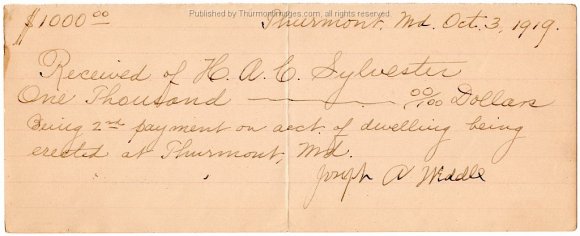 Published by ThurmontImages.com, all rights reserved.
$1000 00 Thurmont, Md. Oct. 3, 1919.
Received of H. A. C. Sylvester
One Thousand 00/100 Dollars
Being 2nd payment on acct. of dwelling being
erected at Thurmont, Md.
Joseph A Weddle